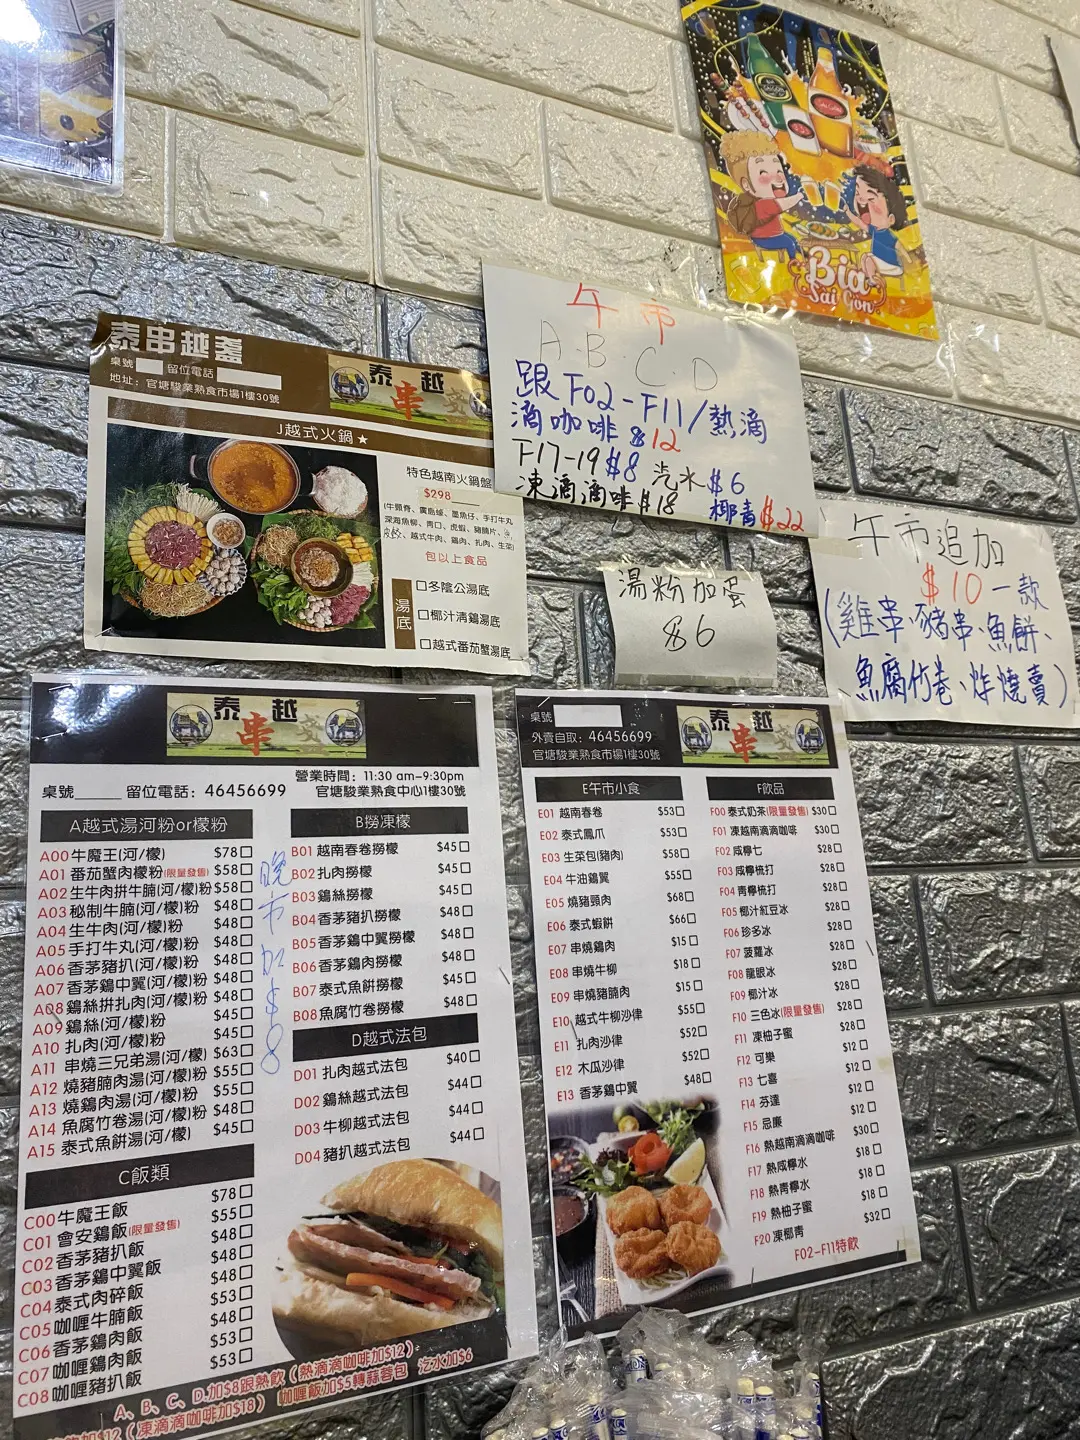 Bia
Sai Gon
泰串越盞
桌號 留位電話
地址: 官塘駿業熟食市場1樓30號
泰串越
J越式火鍋★
特色越南火鍋盤
$298
包以上食品
湯底
□冬陰公湯底
□椰汁清雞湯底
□越式番茄蟹湯底
午市
A.B.C.D
跟F02-F11/熱滴
滴咖啡$12
F17-19$8 汽水$6
凍滴滴啡$18 椰青$22
湯粉加蛋
$6
午市追加
$10一款
(雞串、豬串、魚餅、
魚腐竹卷、炸燒賣)
泰串越
營業時間: 11:30 am-9:30pm
桌號______ 留位電話: 46456699 官塘駿業熟食中心1樓30號
A越式湯河粉or檬粉
A00牛魔王(河/檬) $78□
A01番茄蟹肉檬粉(限量發售) $58□
A02生牛肉拼牛腩(河/檬)粉 $58□
A03秘制牛腩(河/檬)粉 $48□
A04生牛肉(河/檬)粉 $48□
A05手打牛丸(河/檬)粉 $48□
A06香茅豬扒(河/檬)粉 $48□
A07香茅鷄中翼(河/檬)粉 $48□
A08鷄絲拼扎肉(河/檬)粉 $48□
A09鷄絲(河/檬)粉 $45□
A10扎肉(河/檬)粉 $45□
A11串燒三兄弟湯(河/檬)粉 $63□
A12燒豬腩肉湯(河/檬)粉 $55□
A13燒鷄肉湯(河/檬)粉 $55□
A14魚腐竹卷湯(河/檬)粉 $48□
A15泰式魚餅湯(河/檬) $45□
晚市加$8
C飯類
C00牛魔王飯 $78□
C01會安鷄飯(限量發售) $55□
C02香茅豬扒飯 $48□
C03香茅鷄中翼飯 $48□
C04泰式肉碎飯 $48□
C05咖喱牛腩飯 $53□
C06香茅鷄肉飯 $48□
C07咖喱鷄肉飯 $53□
C08咖喱豬扒飯 $53□
B撈凍檬
B01越南春卷撈檬 $45□
B02扎肉撈檬 $45□
B03鷄絲撈檬 $45□
B04香茅豬扒撈檬 $48□
B05香茅鷄中翼撈檬 $48□
B06香茅鷄肉撈檬 $48□
B07泰式魚餅撈檬 $45□
B08魚腐竹卷撈檬 $48□
D越式法包
D01扎肉越式法包 $40□
D02鷄絲越式法包 $44□
D03牛柳越式法包 $44□
D04豬扒越式法包 $44□
A、B、C、D.加$8跟熱飲(熱滴滴咖啡加$12)
加$12(凍滴滴咖啡加$18) 咖喱飯加$5轉蒜蓉包 汽水加$6
桌號
外賣自取: 46456699
官塘駿業熟食市場1樓30號
泰串越
E午市小食
E01 越南春卷 $53□
E02 泰式鳳爪 $53□
E03 生菜包(豬肉) $58□
E04 牛油鷄翼 $55□
E05 燒豬頸肉 $68□
E06 泰式蝦餅 $66□
E07 串燒鷄肉 $15□
E08 串燒牛柳 $18□
E09 串燒豬腩肉 $15□
E10 越式牛柳沙律 $55□
E11 扎肉沙律 $52□
E12 木瓜沙律 $52□
E13 香茅鷄中翼 $48□
F飲品
F00 泰式奶茶(限量發售) $30□
F01 凍越南滴滴咖啡 $30□
F02 咸檸七 $28□
F03 咸檸梳打 $28□
F04 青檸梳打 $28□
F05 椰汁紅豆冰 $28□
F06 珍多冰 $28□
F07 菠蘿冰 $28□
F08 龍眼冰 $28□
F09 椰汁冰 $28□
F10 三色冰(限量發售) $28□
F11 凍柚子蜜 $28□
F12 可樂 $12□
F13 七喜 $12□
F14 芬達 $12□
F15 忌廉 $12□
F16 熱越南滴滴咖啡 $30□
F17 熱咸檸水 $18□
F18 熱青檸水 $18□
F19 熱柚子蜜 $18□
F20 凍椰青 $32□
F02-F11特飲